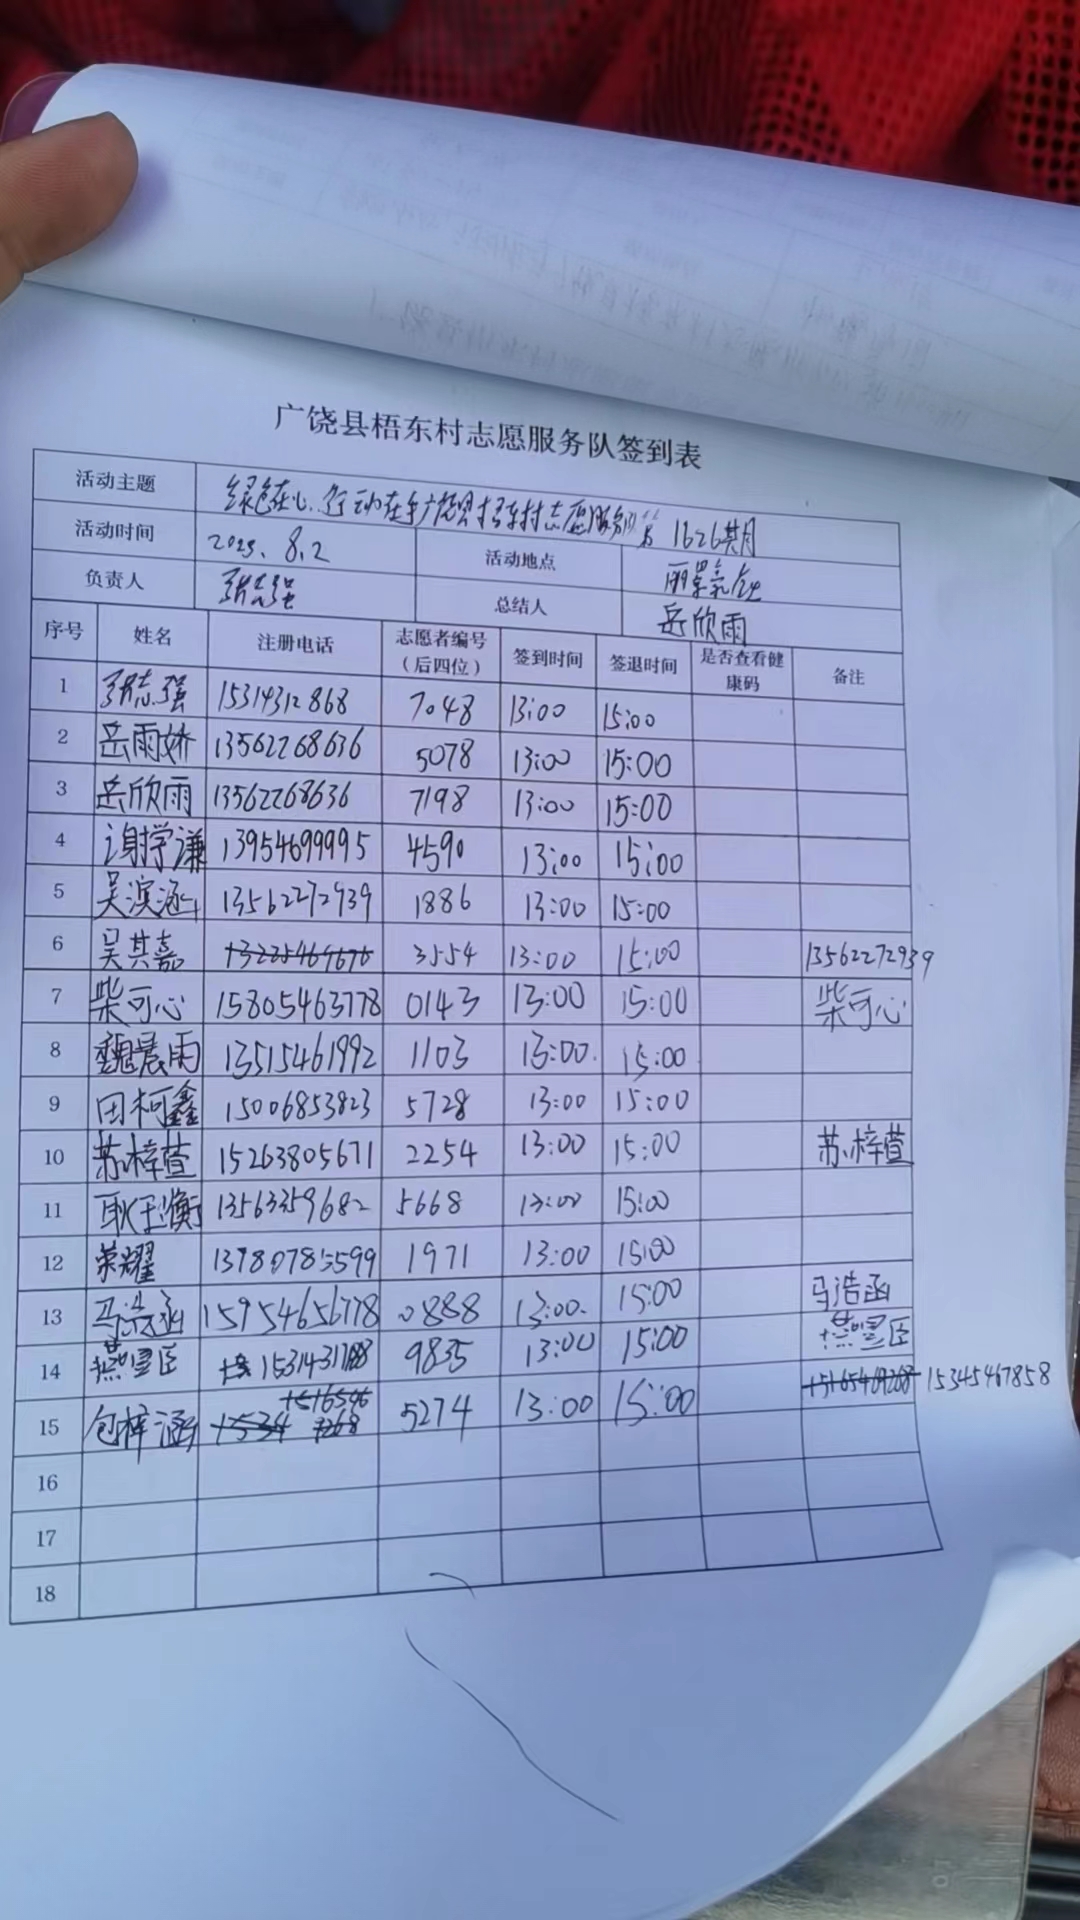 广饶县梧东村志愿服务队签到表
活动主题 绿色在心、行动在手广饶县梧东村志愿服务队第1626期
活动时间 2023.8.2 活动地点
负责人 张志强 总结人 岳欣雨
序号 姓名 注册电话 志愿者编号（后四位） 签到时间 签退时间 是否查看健康码 备注
1 张志强 15314312868 7048 13:00 15:00
2 岳雨娇 13562268636 5078 13:00 15:00
3 岳欣雨 13562268636 7198 13:00 15:00
4 谢学谦 13954699995 4590 13:00 15:00
5 吴滨涵 13562272939 1886 13:00 15:00
6 吴其嘉 3554 13:00 15:00 13562272939
7 柴可心 15805463778 0143 13:00 15:00 柴可心
8 魏晨雨 13515461992 1103 13:00 15:00
9 田柯鑫 15006853823 5728 13:00 15:00
10 苏梓萱 15263805671 2254 13:00 15:00 苏梓萱
11 耿玉衡 13563359682 5668 13:00 15:00
12 荣耀 13780785599 1971 13:00 15:00
13 马浩函 15954656778 0888 13:00 15:00 马浩函
14 9835 13:00 15:00
15 包梓涵 5274 13:00 15:00 15345467858
16
17
18